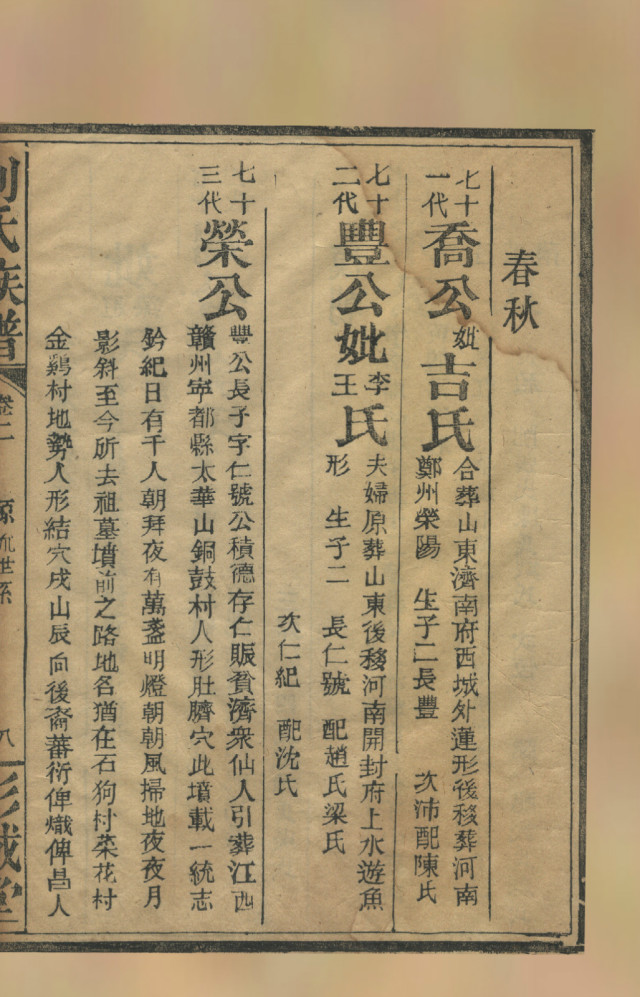 春秋
七十一代喬公妣吉氏
合葬山東濟南府西城外蓮形後移葬河南
鄭州榮陽 生子二長豐 次沛配陳氏
七十二代豐公妣李王氏
夫婦原葬山東後移河南開封府上水遊魚
形 生子二 長仁號 配趙氏梁氏
次仁紀 配沈氏
七十三代榮公
豐公長子字仁號公積德存仁賑貧濟衆仙人引葬江西
贛州寧都縣太華山銅鼓村人形肚臍穴此墳載一統志
鈐紀日有千人朝拜夜有萬盞明燈朝朝風掃地夜夜月
影斜至今所去祖墓墳前之路地名猶在石狗村菜花村
金鷄村地勢人形結穴戌山辰向後裔蕃衍俾熾俾昌人
氏族譜
卷二
源流世系
八